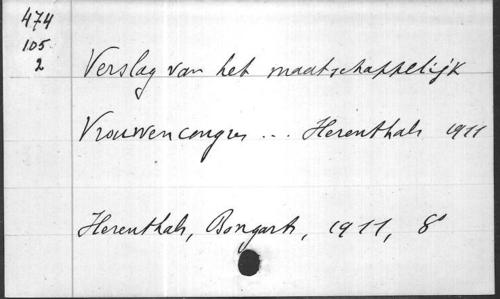 474
105
2
Verslag van het maatschappelijk
Vrouwencongres ... Herenthals 1911
Herenthals, Bongarts, 1911, 8°